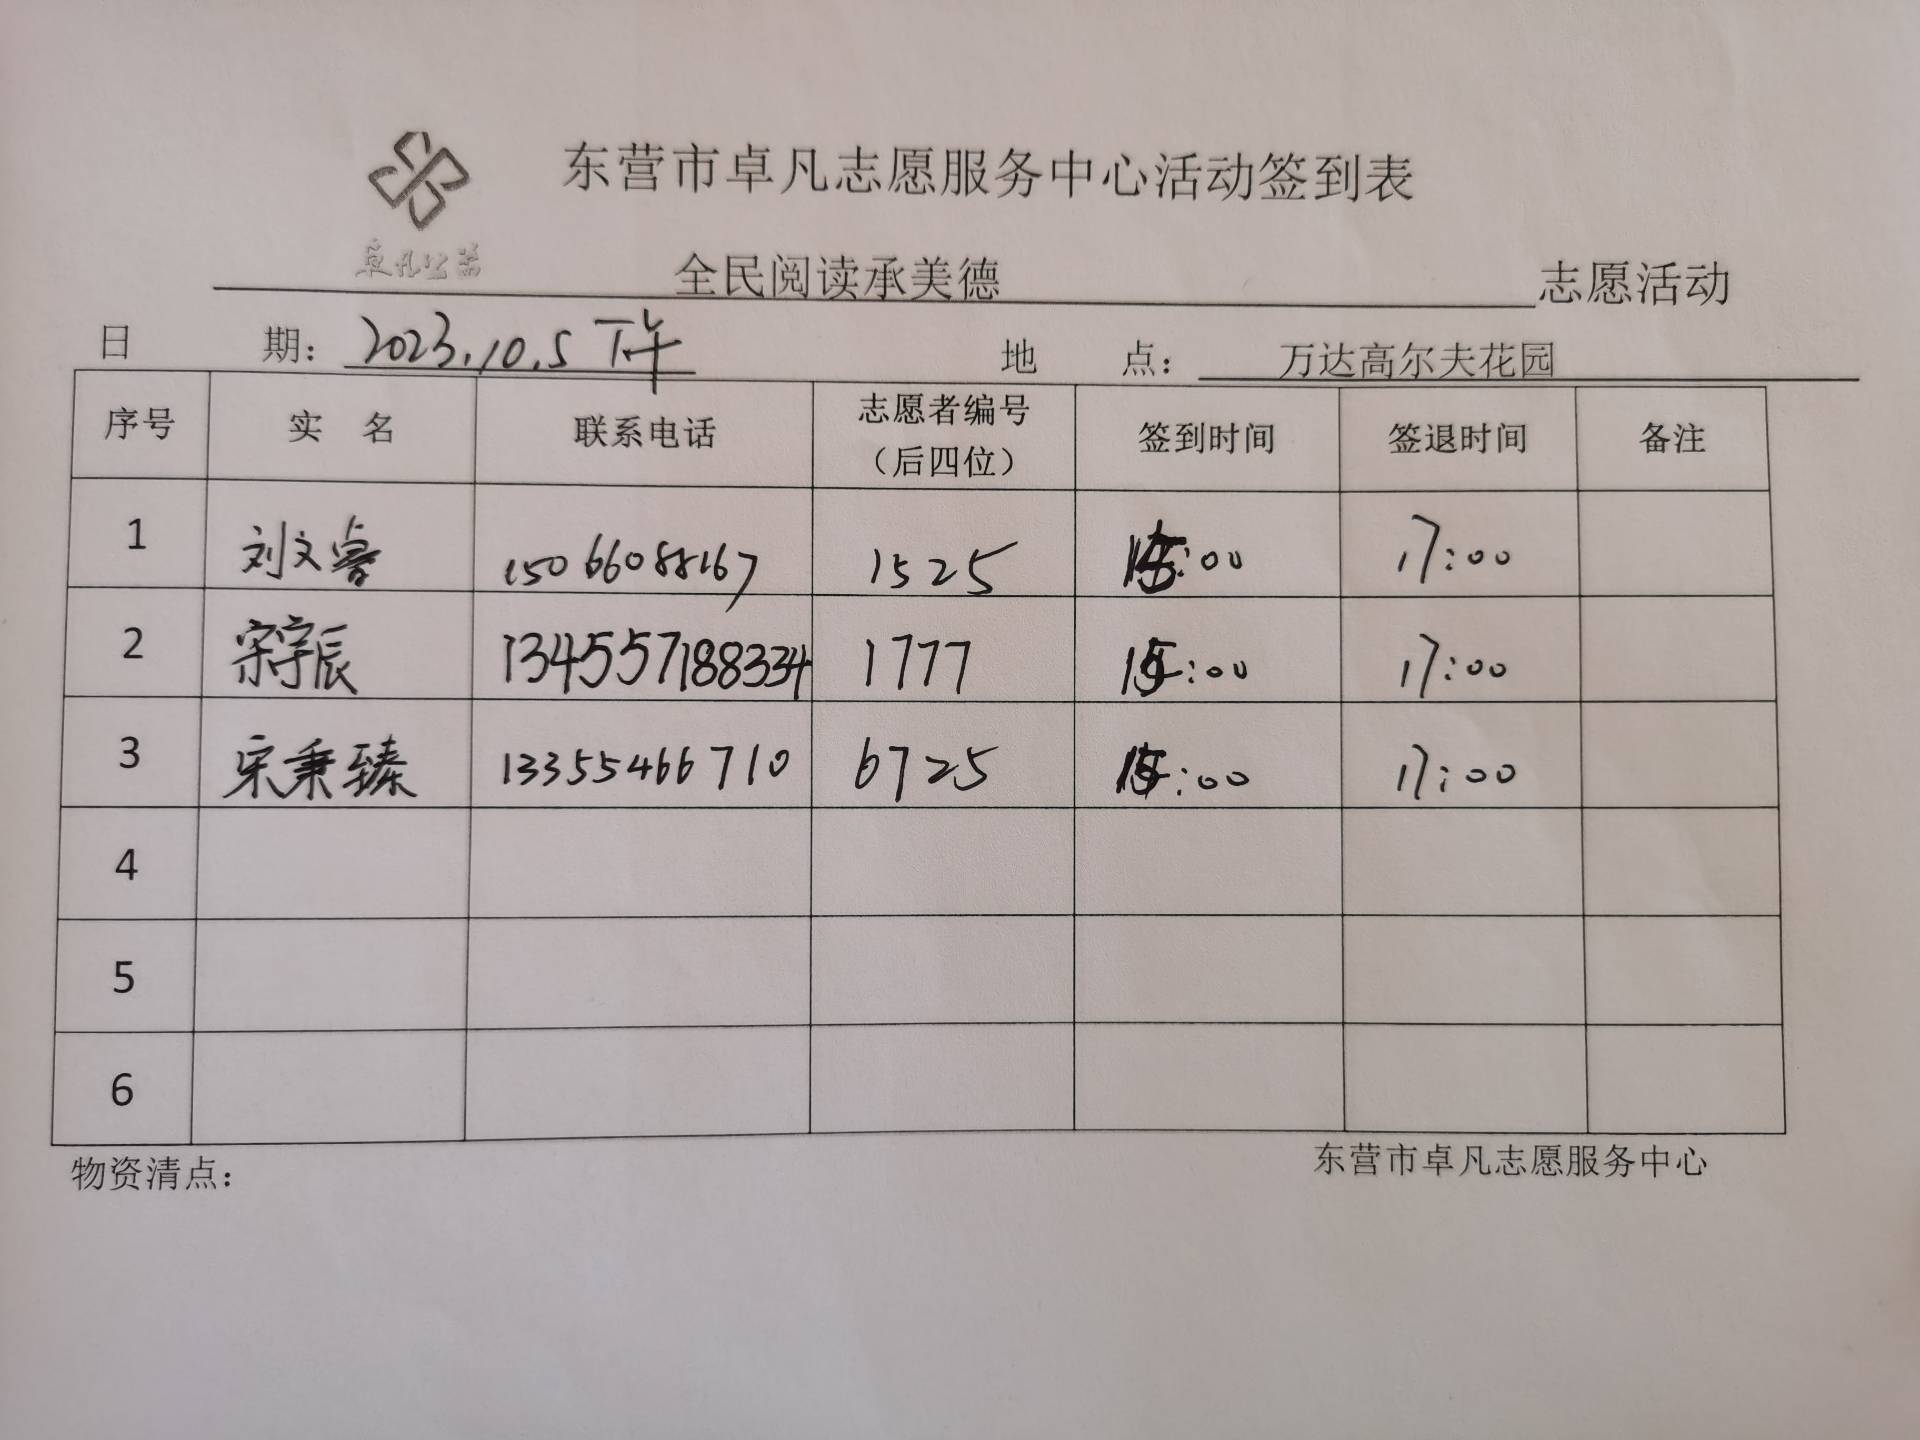 东营市卓凡志愿服务中心活动签到表
卓凡公益
全民阅读承美德 志愿活动
日 期： 2023.10.5 下午 地 点： 万达高尔夫花园
序号 实 名 联系电话 志愿者编号（后四位） 签到时间 签退时间 备注
1 刘文睿 15066088167 1525 15:00 17:00
2 宋宇辰 134557188334 1777 15:00 17:00
3 宋秉臻 13355466710 6725 15:00 17:00
4
5
6
物资清点： 东营市卓凡志愿服务中心